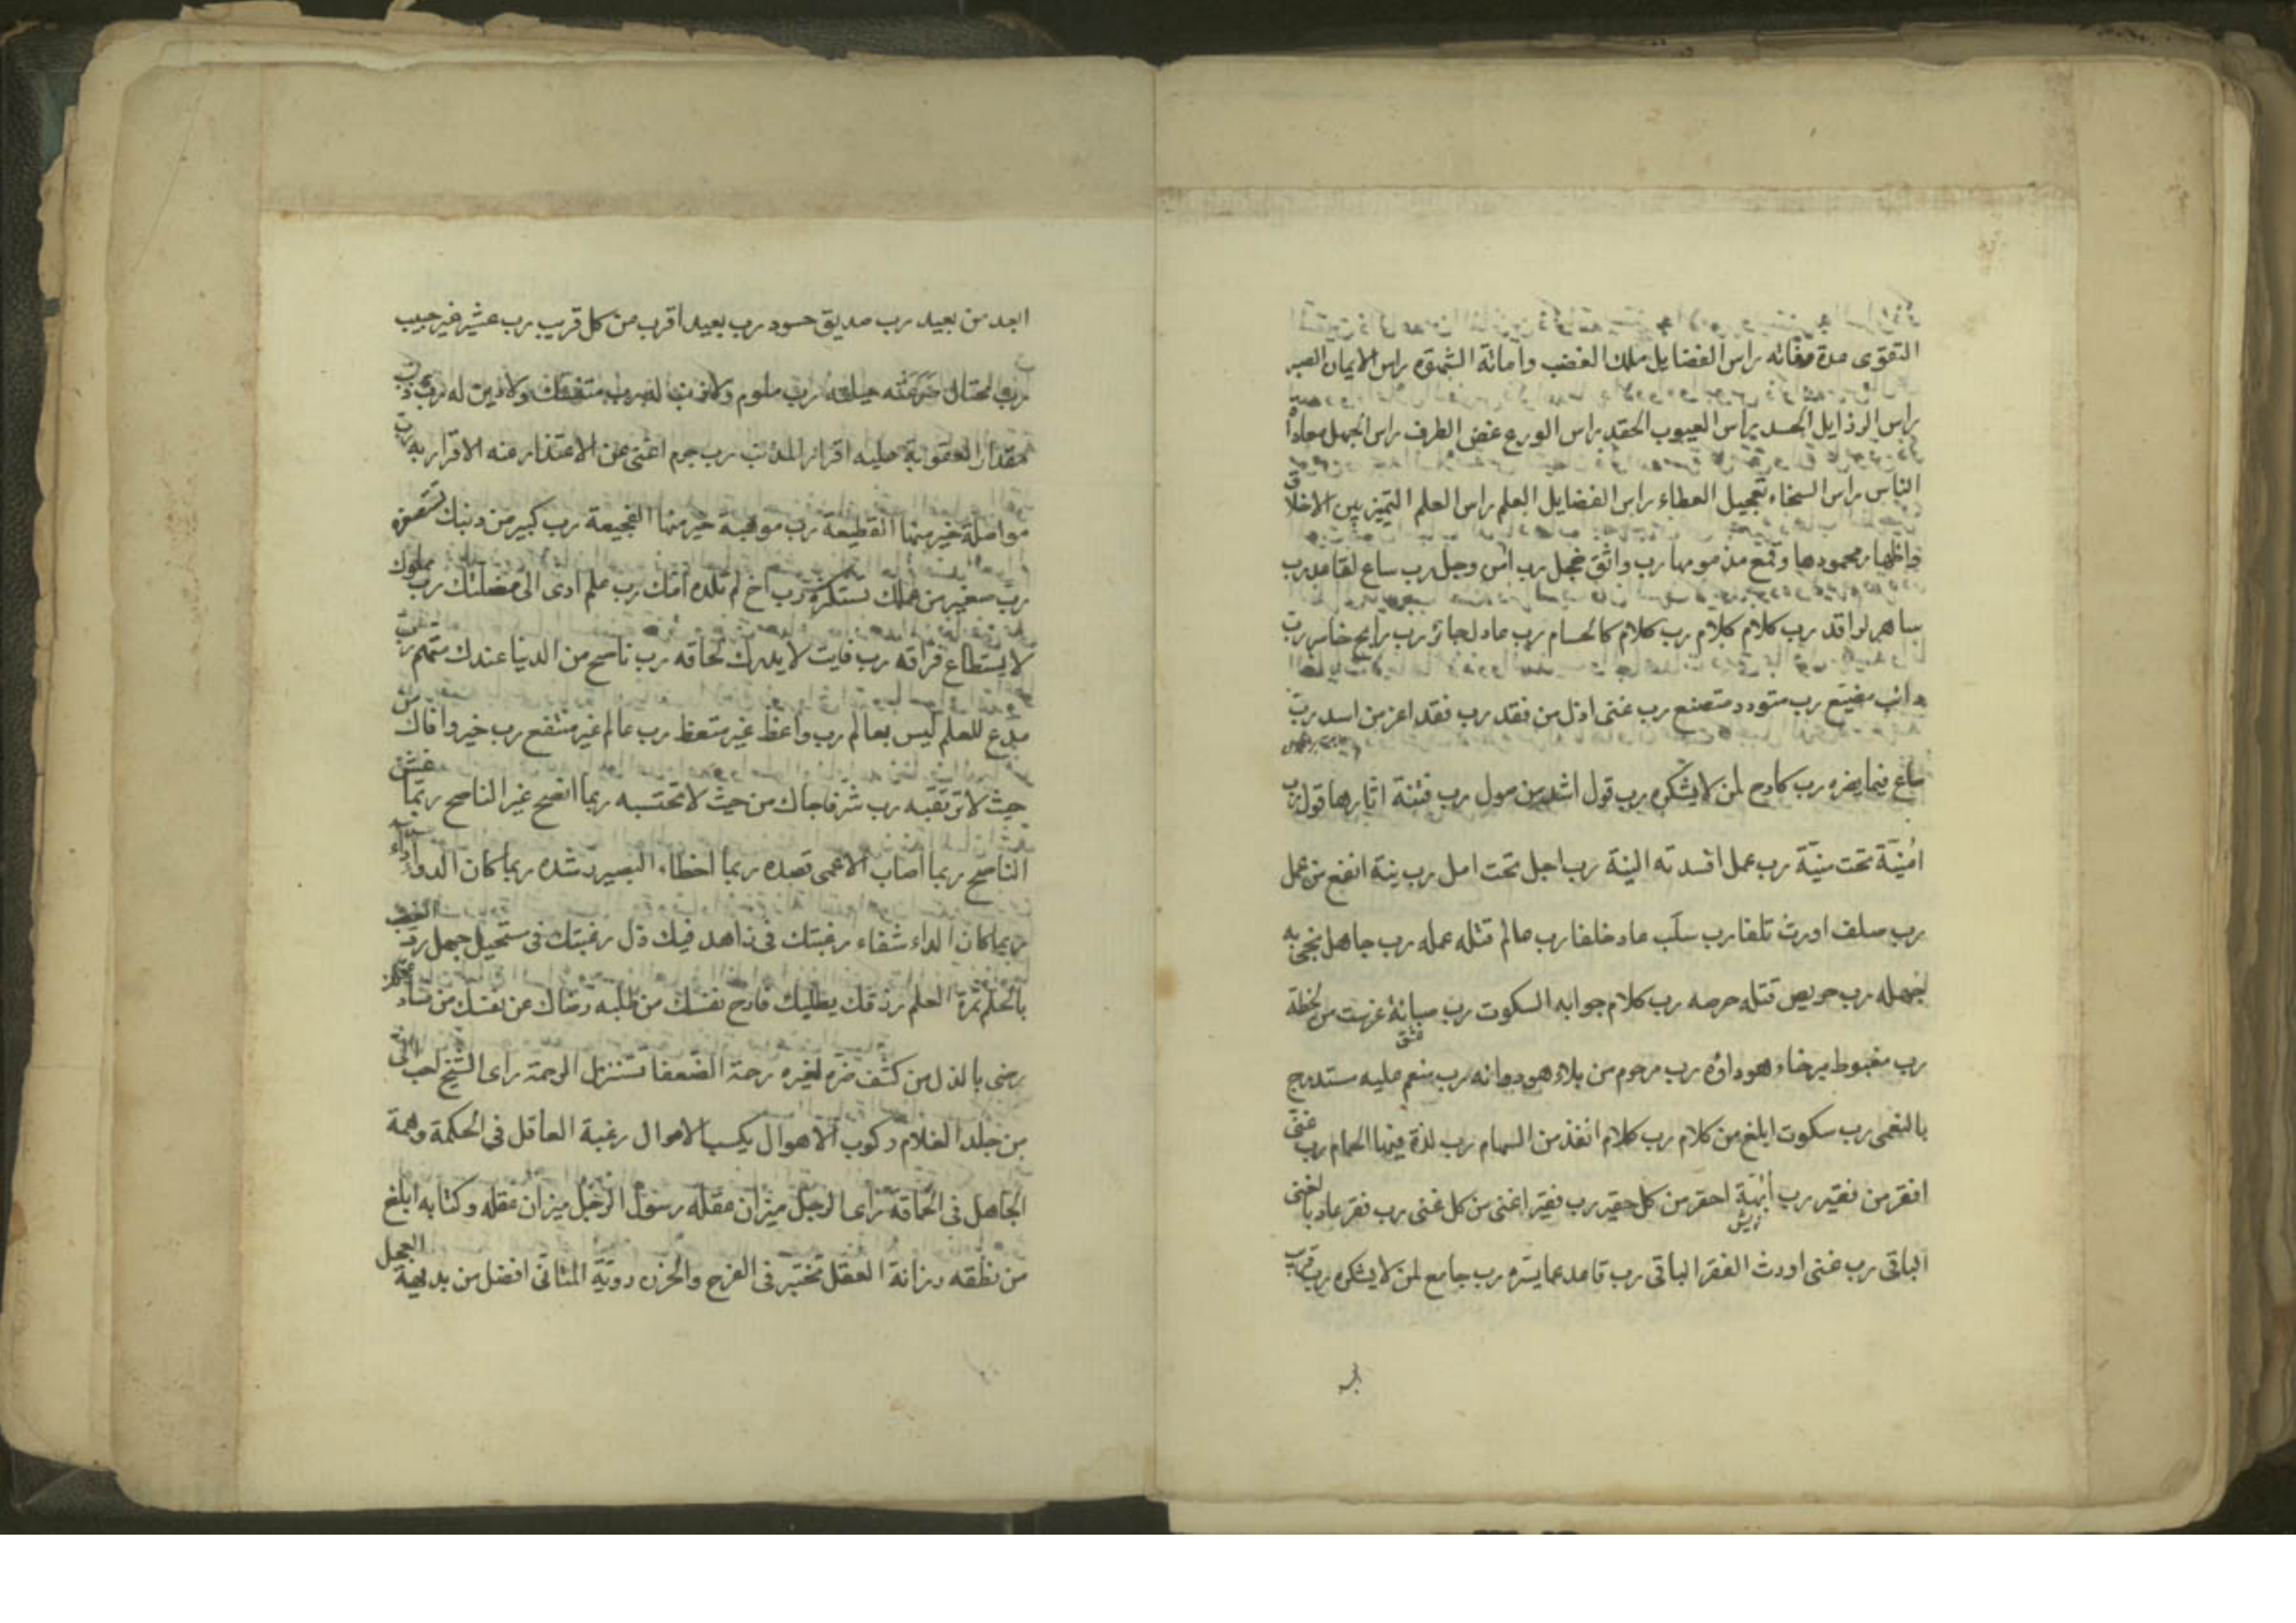 التقوى مدة مفاته راس الفضايل ملك الغضب واماتة الشهوة راس الايمان الصبر
راس الرذايل الحسد راس العيوب الحقد راس الورع غض الطرف راس الجهل معاداة
الناس راس السخاء تعجيل العطاء راس الفضايل العلم راس العلم التميز بين الاخلاق
واظهار محمودها وقمع مذمومها رب واثق خجل رب امن وجل رب ساع لقاعد رب
ساهر لراقد رب كلام كلام رب كلام كالحسام رب عادل جائر رب رابح خاسر رب
دائب مضيع رب متودد متصنع رب غنى اذل من فقد رب فقد اعز من اسد رب
ساع فيما يضره رب كادح لمن لا يشكره رب قول اشد من صول رب فتنة اثارها قول رب
امنية تحت منية رب عمل افسدته النية رب اجل تحت امل رب نية انفع من عمل
رب صلف اورث تلفا رب سلب عاد خلفا رب عالم قتله عمله رب جاهل نجى به
جهله رب حريص قتله حرصه رب كلام جوابه السكوت رب صبابة غرست من لحظة
عشق
رب مغبوط برخاء هو داؤه رب مرحوم من بلاء هو دوائه رب منعم عليه مستدرج
بالنعمى رب سكوت ابلغ من كلام رب كلام انفذ من السهام رب لذة فيها الحمام رب غنى
افقر من فقير رب ابهة احقر من كل حقير رب فقير اغنى من كل غنى رب فقر عاد بالغنى
الباقى رب غنى اورث الفقر الباقى رب قاعد عما يسره رب جامع لمن لا يشكره رب قريب
ابعد من بعيد رب صديق حسود رب بعيد اقرب من كل قريب رب عشير غير حبيب
رب محتال صرعته حيلته رب ملوم ولا ذنب له رب متنسك ولا دين له رب ذنب
مقدار العقوبة عليه اقرار المذنب رب جرم اغنى عن الاعتذار منه الاقرار به رب
مواصلة خير منها القطيعة رب موهبة خير منها الفجيعة رب كبير من ذنبك تستصغره
رب صغير من عملك تستكبره رب اخ لم تلده امك رب علم ادى الى مضلتك رب مملوك
لا يستطاع فراقه رب فايت لا يدرك لحاقه رب ناصح من الدنيا عندك متهم رب
مدع للعلم ليس بعالم رب واعظ غير متعظ رب عالم غير منتفع رب خير وافاك من
حيث لا ترتقبه رب شر فاجاك من حيث لا تحتسبه ربما انصح غير الناصح ربما غش
الناصح ربما اصاب الاعمى قصده ربما اخطاء البصير رشده ربما كان الدواء داء
ربما كان الداء شفاء رغبتك فى زاهد فيك ذل رغبتك فى مستحيل جهل رد الغضب
بالحلم ثمرة العلم رزقك يطلبك فارح نفسك من طلبه رضاك عن نفسك من فساد عقلك
رضى بالذل من كشف ضره لغيره رحمة الضعفا تستنزل الرحمة راى الشيخ احب الى
من جلد الغلام ركوب الاهوال يكسب الاموال رغبة العاقل فى الحكمة وهمة
الجاهل فى الحماقة راى الرجل ميزان عقله رسول الرجل ميزان عقله وكتابه ابلغ
من نطقه رزانة العقل تختبر فى الفرح والحزن روية المتانى افضل من بديهة العجل